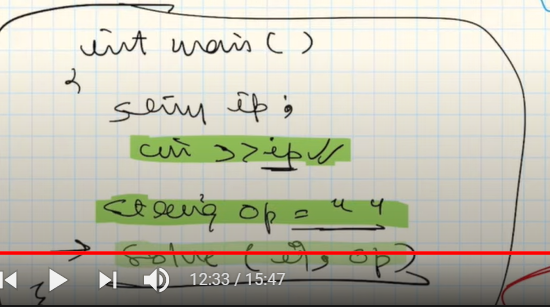 int main()
{
string ip;
cin >> ip
string op = " "
solve (ip, op)
}
12:33 / 15:47